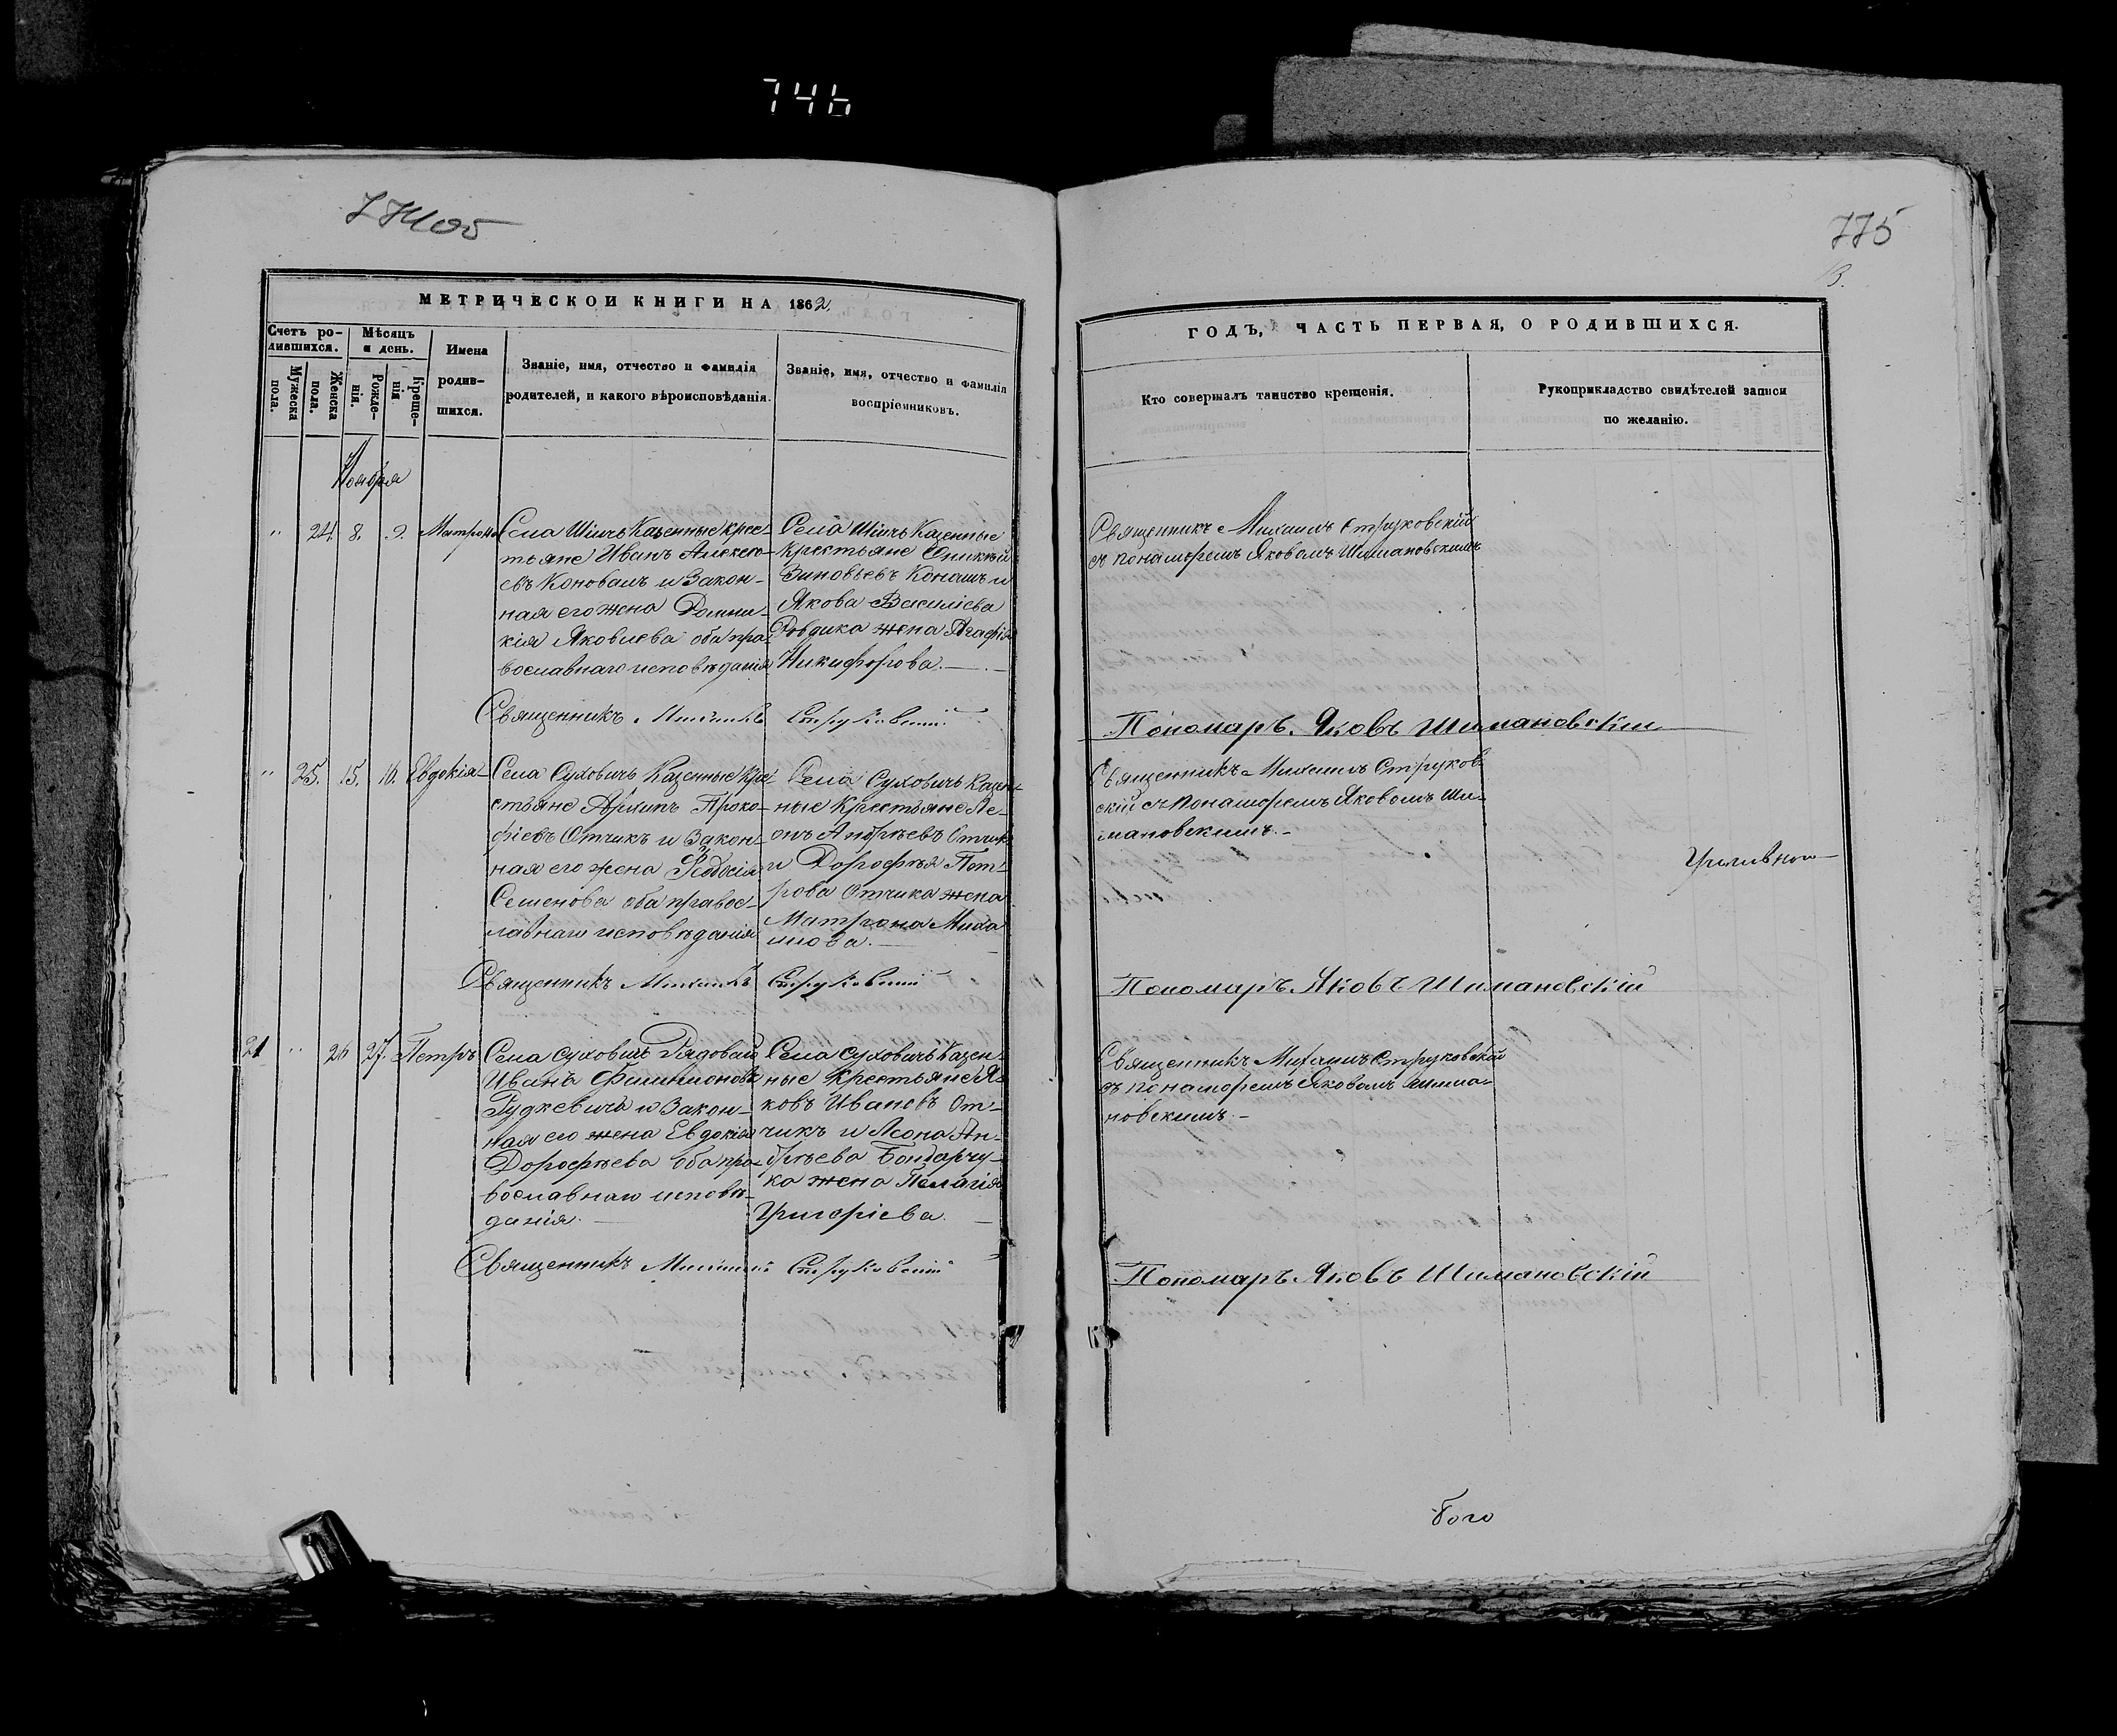 746
774об
775
3.
МЕТРИЧЕСКОЙ КНИГИ НА 1862.
Счетъ ро-
дившихся.
Мужеска
пола.
Женска
пола.
Мѣсяцъ
и день.
Рожде-
нія.
Креще-
нія
Имена
родив-
шихся.
Званіе, имя, отчество и фамилія
родителей, и какого вѣроисповѣданія.
Званіе, имя, отчество и фамилія
воспріемниковъ.
ГОДЪ, ЧАСТЬ ПЕРВАЯ, О РОДИВШИХСЯ.
Кто совершалъ таинство крещенія.
Рукоприкладство свидѣтелей записи
по желанію.
Ноября
" 24. 8. 9. Матрона
Села Шичь Казенные крес-
тьяне Иванъ Алексѣ-
евъ Коновалъ и Закон-
ная его жена Домни-
кія Яковлева оба пра-
вославнаго исповѣданія
Села Шичь Казенные
Крестьяне
Зиновьевъ Конашъ и
Якова Василіева
Ровдика жена Агафія
Никифорова.
Священникъ Михаилъ Струковскій
съ понаморемъ Яковомъ Шимановскимъ
Священникъ Михаилъ Струковскій
Пономаръ Яковъ Шимановскій
" 25. 15. 16. Евдокія
Села Суховичь Казенные Кре-
стьяне Архипъ Проко-
фіевъ Отчикъ и Закон-
ная его жена Ѳеодосія
Семенова оба правос-
лавнаго исповѣданія
Села Суховичь Казен-
ные Крестьяне Ле-
онъ Андрѣевъ Отчикъ
и Дорофѣя Пет-
рова Отчика жена
Матрона Миха
илова.
Священникъ Михаилъ Струков-
скій съ понаморемъ Яковомъ Ши-
мановскимъ.
Священникъ Михаилъ Струковскій
Пономаръ Яковъ Шимановскій
21 " 26 27. Петръ
Села Суховичь Рядовой
Иванъ Филимоновъ
Рудкевичъ и Закон-
ная его жена Евдокія
Дорофѣева оба пра-
вославнаго исповѣ-
данія.
Села Суховичь Казен-
ные Крестьяне Я-
ковъ Ивановъ От-
чикъ и Леона Ан-
дрѣева Бондарчу-
ка жена Пелагія
Григоріева.
Священникъ Михаилъ Струковскій
съ понаморемъ Яковомъ Шима-
новскимъ.
Священникъ Михаилъ Струковскій
Пономаръ Яковъ Шимановскій